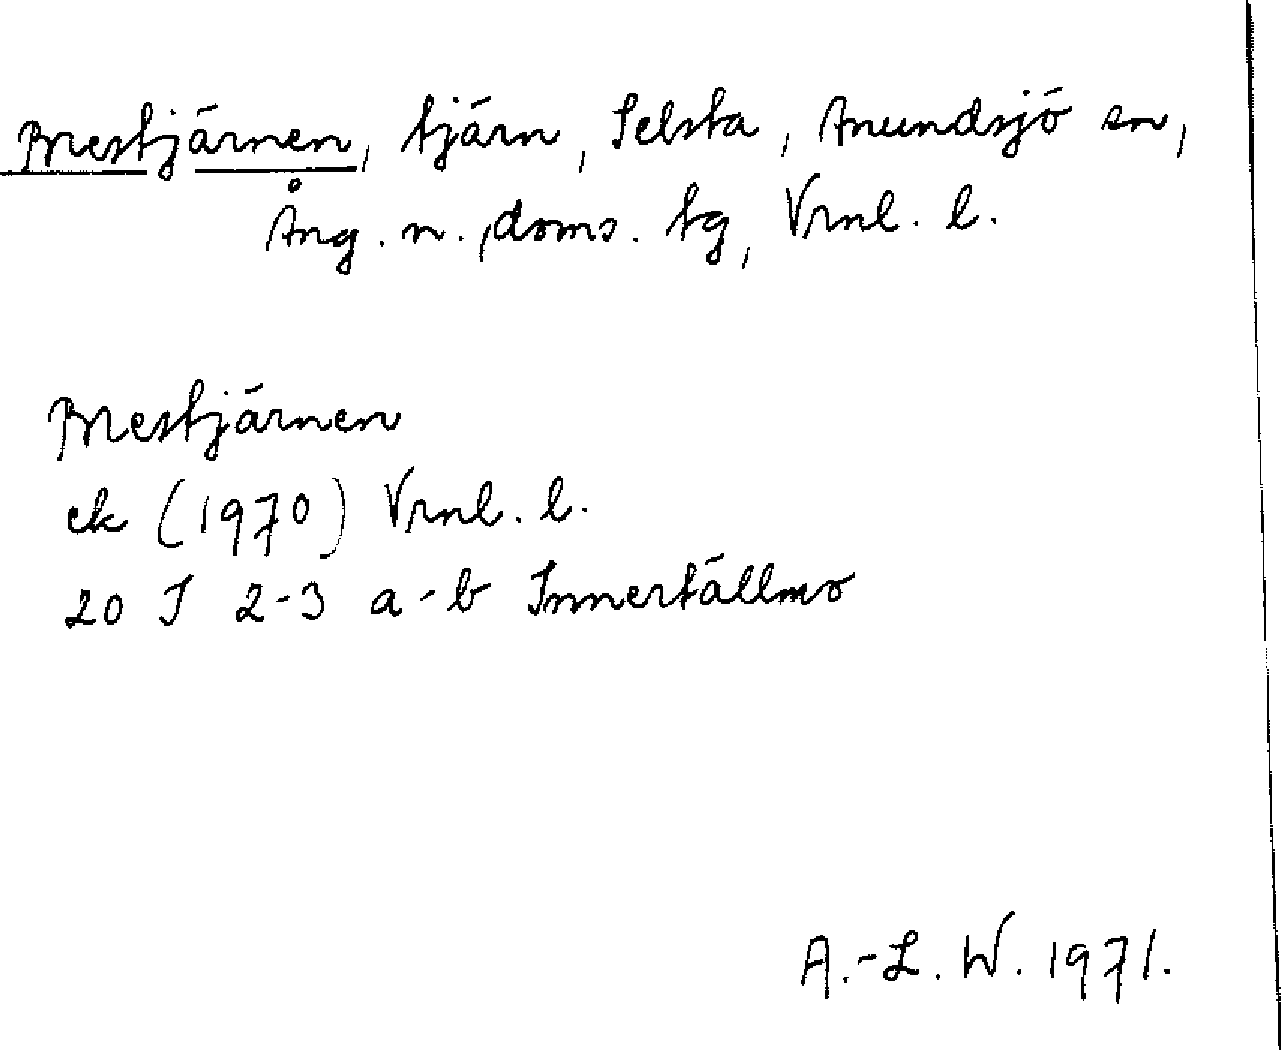 Brestjärnen, tjärn, Selsta, Anundsjö sn,
Ång. n. doms. tg, Vrnl. l.
Brestjärnen
ek (1970) Vrnl. l.
20 I 2-3 a-b Innertällmo
A.-L. W. 1971.